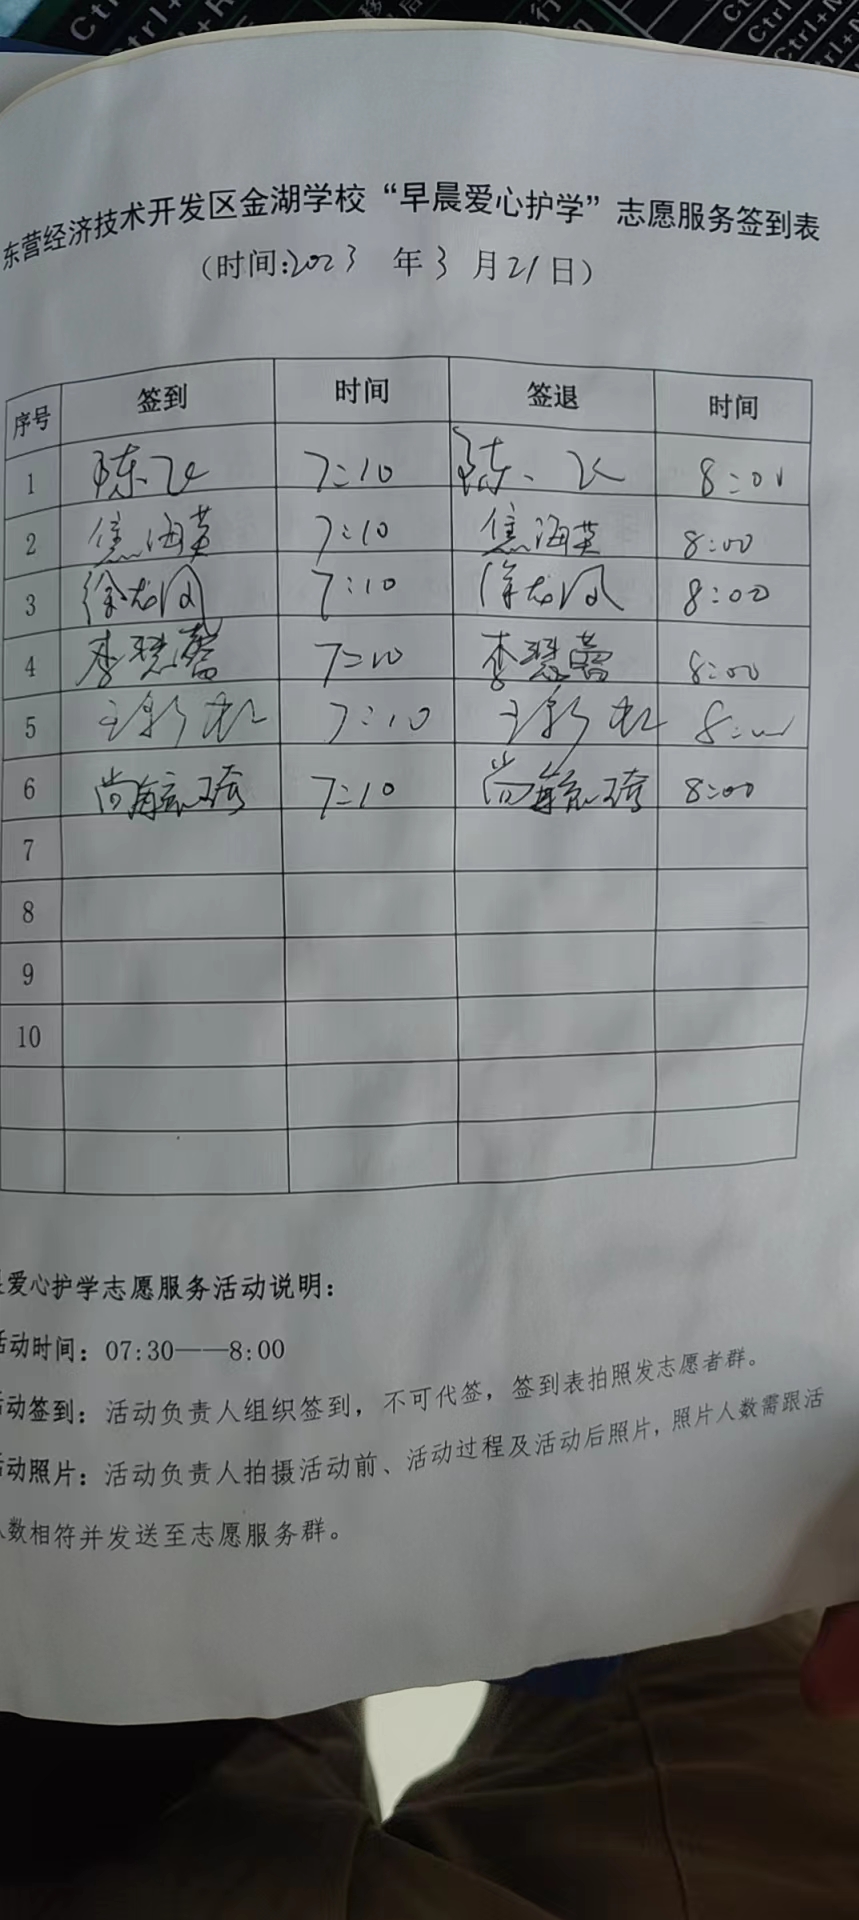 东营经济技术开发区金湖学校“早晨爱心护学”志愿服务签到表
(时间:2023 年 3 月 21 日)
序号 签到 时间 签退 时间
1 陈飞 7:10 陈飞 8:00
2 焦海英 7:10 焦海英 8:00
3 徐龙凤 7:10 徐龙凤 8:00
4 李慧蕾 7:10 李慧蕾 8:00
5 王彩 7:10 王彩 8:00
6 尚毓琦 7:10 尚毓琦 8:00
7
8
9
10
爱心护学志愿服务活动说明:
动时间: 07:30——8:00
动签到: 活动负责人组织签到, 不可代签, 签到表拍照发志愿者群。
动照片: 活动负责人拍摄活动前、活动过程及活动后照片, 照片人数需跟活
数相符并发送至志愿服务群。